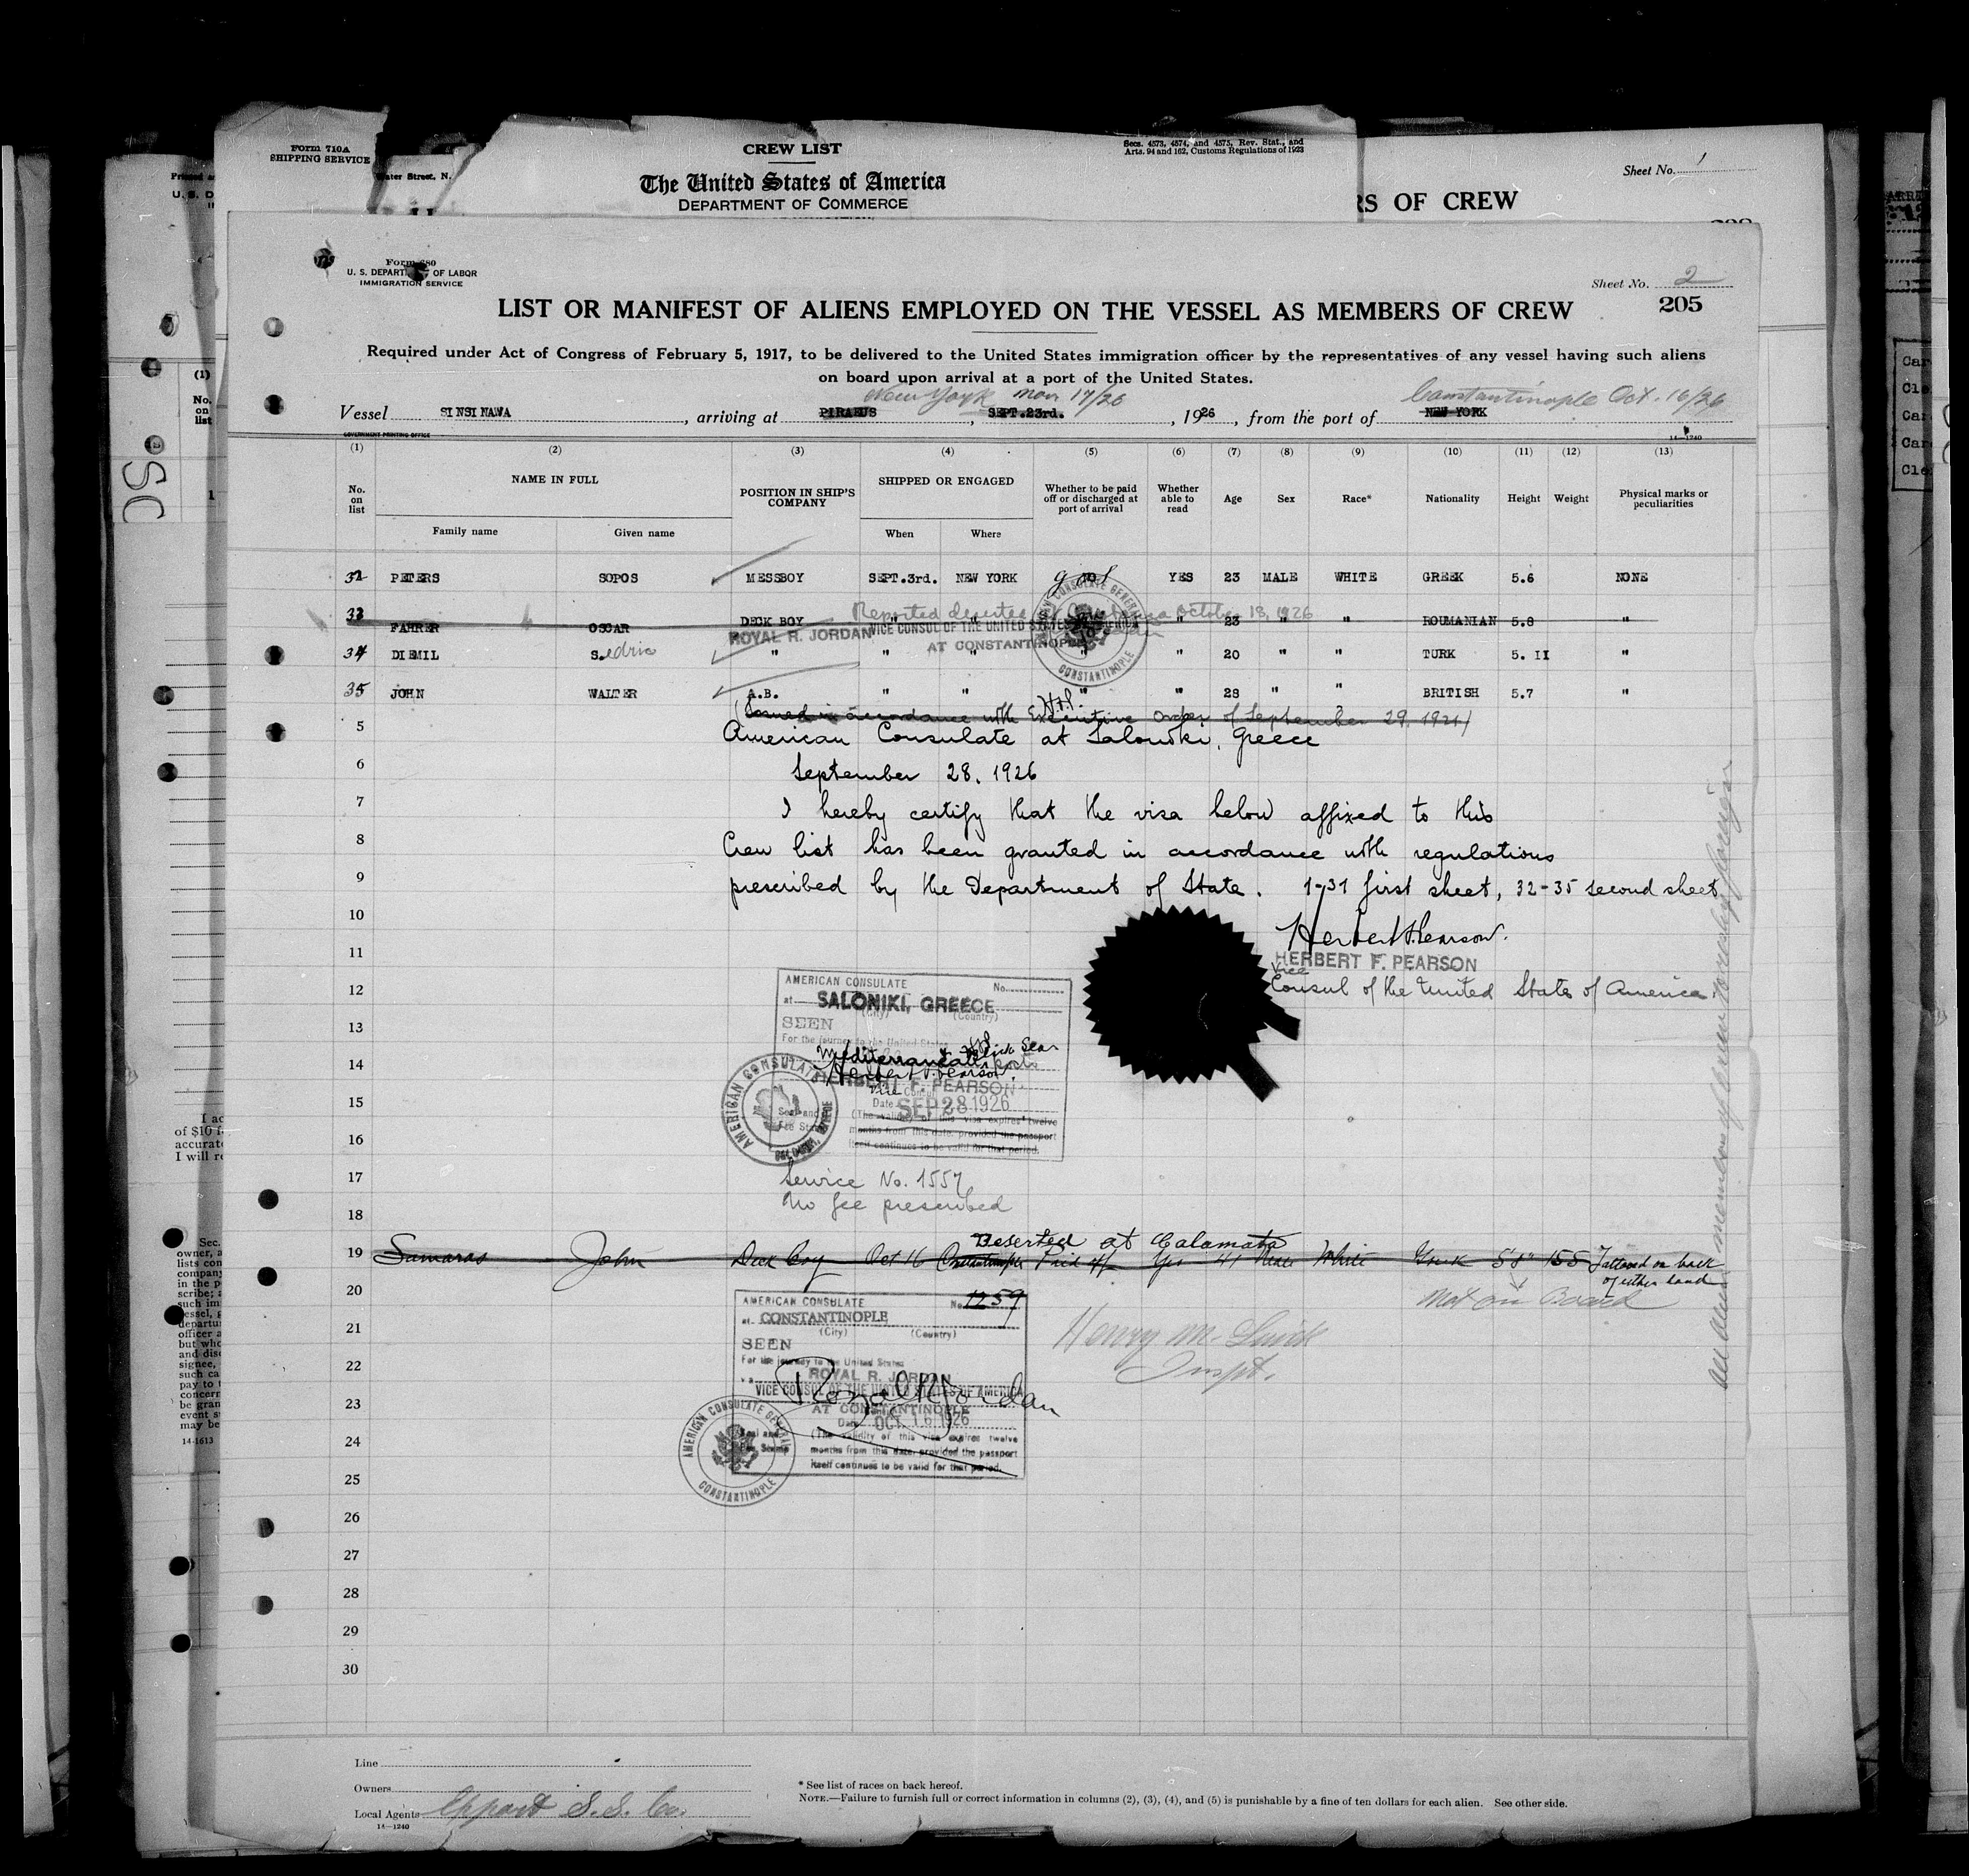 Form 710A
SHIPPING SERVICE
Water Street, N.
CREW LIST
The United States of America
DEPARTMENT OF COMMERCE
Secs. 4573, 4574, and 4575, Rev. Stat., and
Arts. 94 and 162, Customs Regulations of 1923
Sheet No. 1
RS OF CREW
Form 680
U. S. DEPARTMENT OF LABOR
IMMIGRATION SERVICE
Sheet No. 2
205
LIST OR MANIFEST OF ALIENS EMPLOYED ON THE VESSEL AS MEMBERS OF CREW
Required under Act of Congress of February 5, 1917, to be delivered to the United States immigration officer by the representatives of any vessel having such aliens
on board upon arrival at a port of the United States.
New York Nov 17/26 Constantinople Oct. 16/26
Vessel SINSINAWA, arriving at PIRAEUS, SEPT.23rd., 1926, from the port of NEW YORK
GOVERNMENT PRINTING OFFICE
14-1240
(1) (2) (3) (4) (5) (6) (7) (8) (9) (10) (11) (12) (13)
No. on list NAME IN FULL POSITION IN SHIP'S COMPANY SHIPPED OR ENGAGED Whether to be paid off or discharged at port of arrival Whether able to read Age Sex Race* Nationality Height Weight Physical marks or peculiarities
Family name Given name When Where
32 PETERS SOPOS MESSBOY SEPT.3rd. NEW YORK YES 23 MALE WHITE GREEK 5.6 NONE
Reported deserted October 18, 1926
33 FAHRER OSCAR DECK BOY " " " 23 " " ROUMANIAN 5.8 "
ROYAL R. JORDAN VICE CONSUL OF THE UNITED STATES OF AMERICA
AT CONSTANTINOPLE
AMERICAN CONSULATE GENERAL CONSTANTINOPLE
34 DIEMIL S.edric " " " " " 20 " " TURK 5.11 "
35 JOHN WALTER A.B. " " " " 28 " " BRITISH 5.7 "
(Issued in accordance with Executive Order of September 29, 1921)
5 American Consulate at Saloniki, Greece
6 September 28, 1926
7 I hereby certify that the visa below affixed to this
8 Crew list has been granted in accordance with regulations
9 prescribed by the Department of State. 1-31 first sheet, 32-35 second sheet
10
Herbert F. Pearson.
11 HERBERT F. PEARSON
Vice
12 Consul of the United States of America.
AMERICAN CONSULATE No.
at SALONIKI, GREECE
(City) (Country)
13 SEEN
For the journey to the United States
Mediterranean & Black Sea ports
14 Herbert F. Pearson.
HERBERT F. PEARSON
Vice Consul
15 Date SEP 28 1926
(The validity of this visa expires twelve
16 months from this date, provided the passport
itself continues to be valid for that period.
AMERICAN CONSULATE SALONIKI, GREECE
Seal and
Fee Stamp
17 Service No. 1557
No fee prescribed
18
Deserted at Calamata
19 Samaras John Deck Boy Oct 16 Constantinople Paid off Yes 41 Male White Greek 5'8" 155 Tattooed on back
of either hand
20 Not on Board
AMERICAN CONSULATE No. 1259
at CONSTANTINOPLE
21 (City) (Country)
SEEN
For the journey to the United States
22 via ROYAL R. JORDAN
VICE CONSUL OF THE UNITED STATES OF AMERICA
Royal R Jordan
23 AT CONSTANTINOPLE
Date OCT. 16 1926
24 (The validity of this visa expires twelve
months from this date, provided the passport
itself continues to be valid for that period.
AMERICAN CONSULATE GENERAL CONSTANTINOPLE
Seal and
Fee Stamp
Henry M.
Inspt.
25
26
27
28
29
30
Line
Owners
Local Agents S.S. Co.
14-1240
* See list of races on back hereof.
NOTE.—Failure to furnish full or correct information in columns (2), (3), (4), and (5) is punishable by a fine of ten dollars for each alien. See other side.